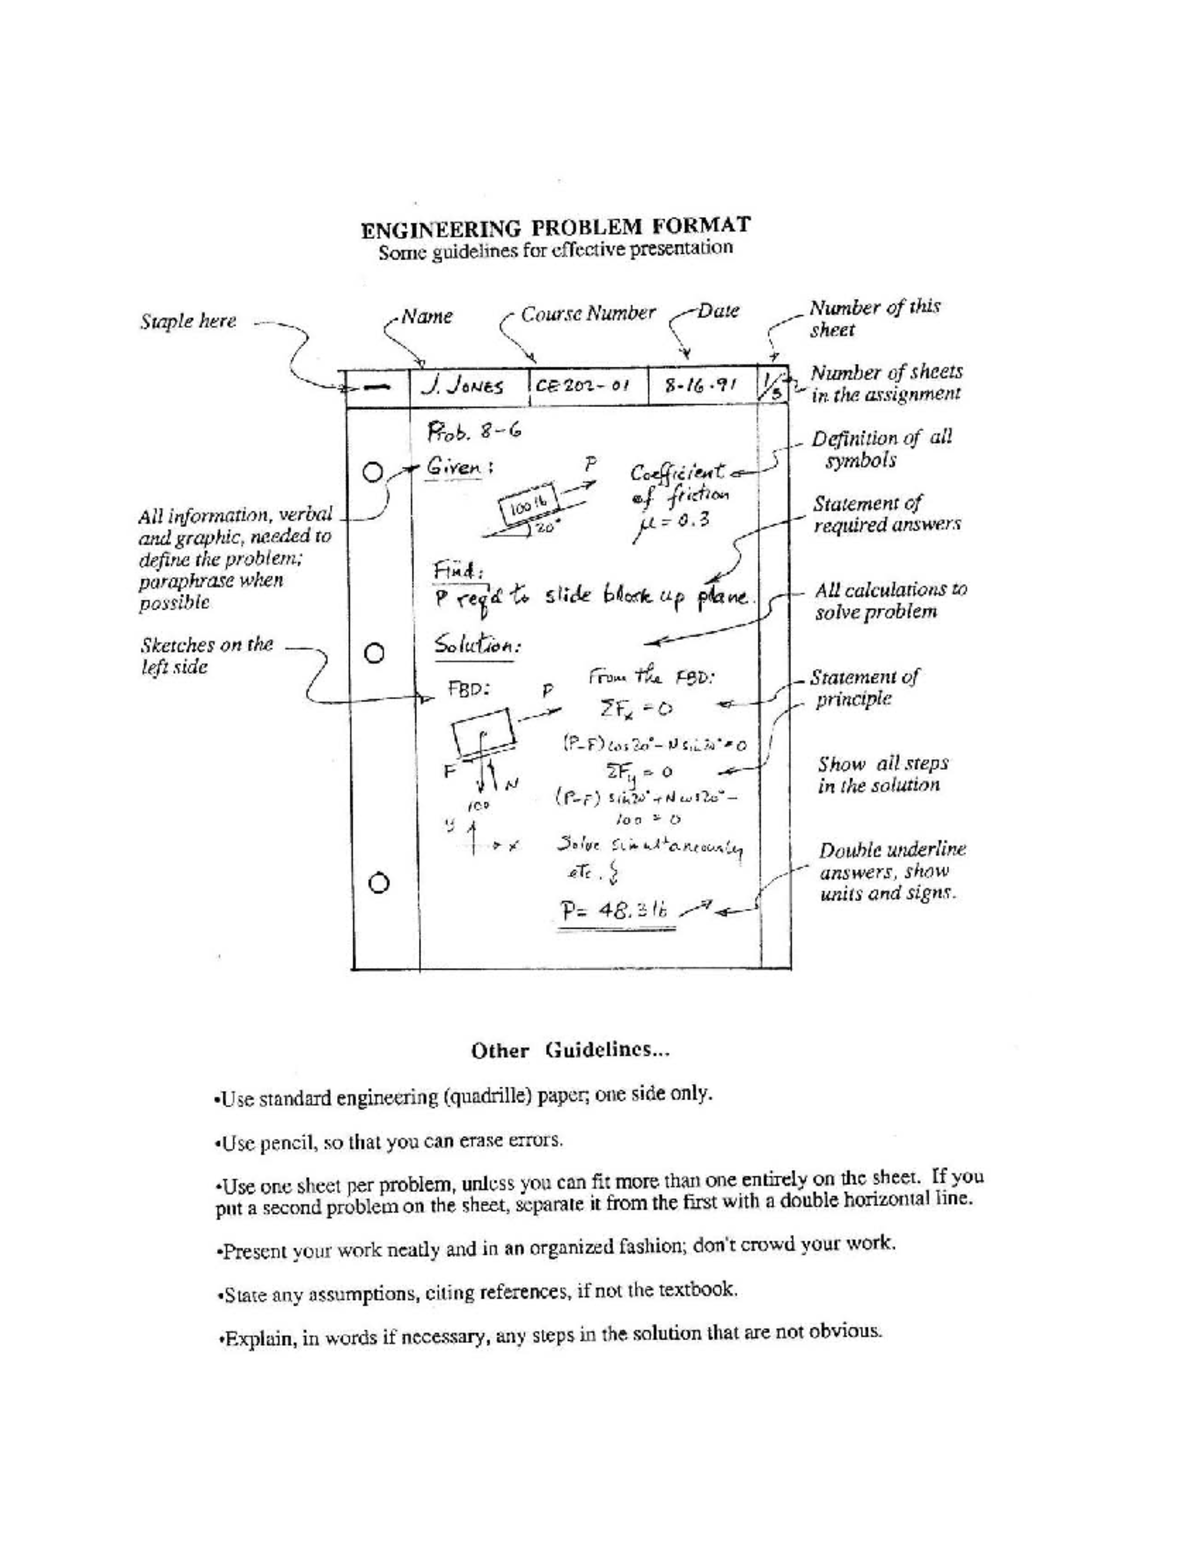 ENGINEERING PROBLEM FORMAT
Some guidelines for effective presentation
Staple here
Name
Course Number
Date
Number of this
sheet
J. JONES
CE 202-01
8-16-91
1/3
Number of sheets
in the assignment
Prob. 8-6
Definition of all
symbols
Given:
P
100 lb
20°
Coefficient
of friction
μ = 0.3
All information, verbal
and graphic, needed to
define the problem;
paraphrase when
possible
Statement of
required answers
Find:
P req'd to slide block up plane.
All calculations to
solve problem
Sketches on the
left side
Solution:
FBD:
P
F
N
100
y
x
From the FBD:
ΣFx = 0
(P-F) cos20° - N sin20° = 0
ΣFy = 0
(P-F) sin20° + N cos20° -
100 = 0
Solve simultaneously
etc.
P = 48.3 lb
Statement of
principle
Show all steps
in the solution
Double underline
answers, show
units and signs.
Other Guidelines...
•Use standard engineering (quadrille) paper; one side only.
•Use pencil, so that you can erase errors.
•Use one sheet per problem, unless you can fit more than one entirely on the sheet. If you
put a second problem on the sheet, separate it from the first with a double horizontal line.
•Present your work neatly and in an organized fashion; don't crowd your work.
•State any assumptions, citing references, if not the textbook.
•Explain, in words if necessary, any steps in the solution that are not obvious.